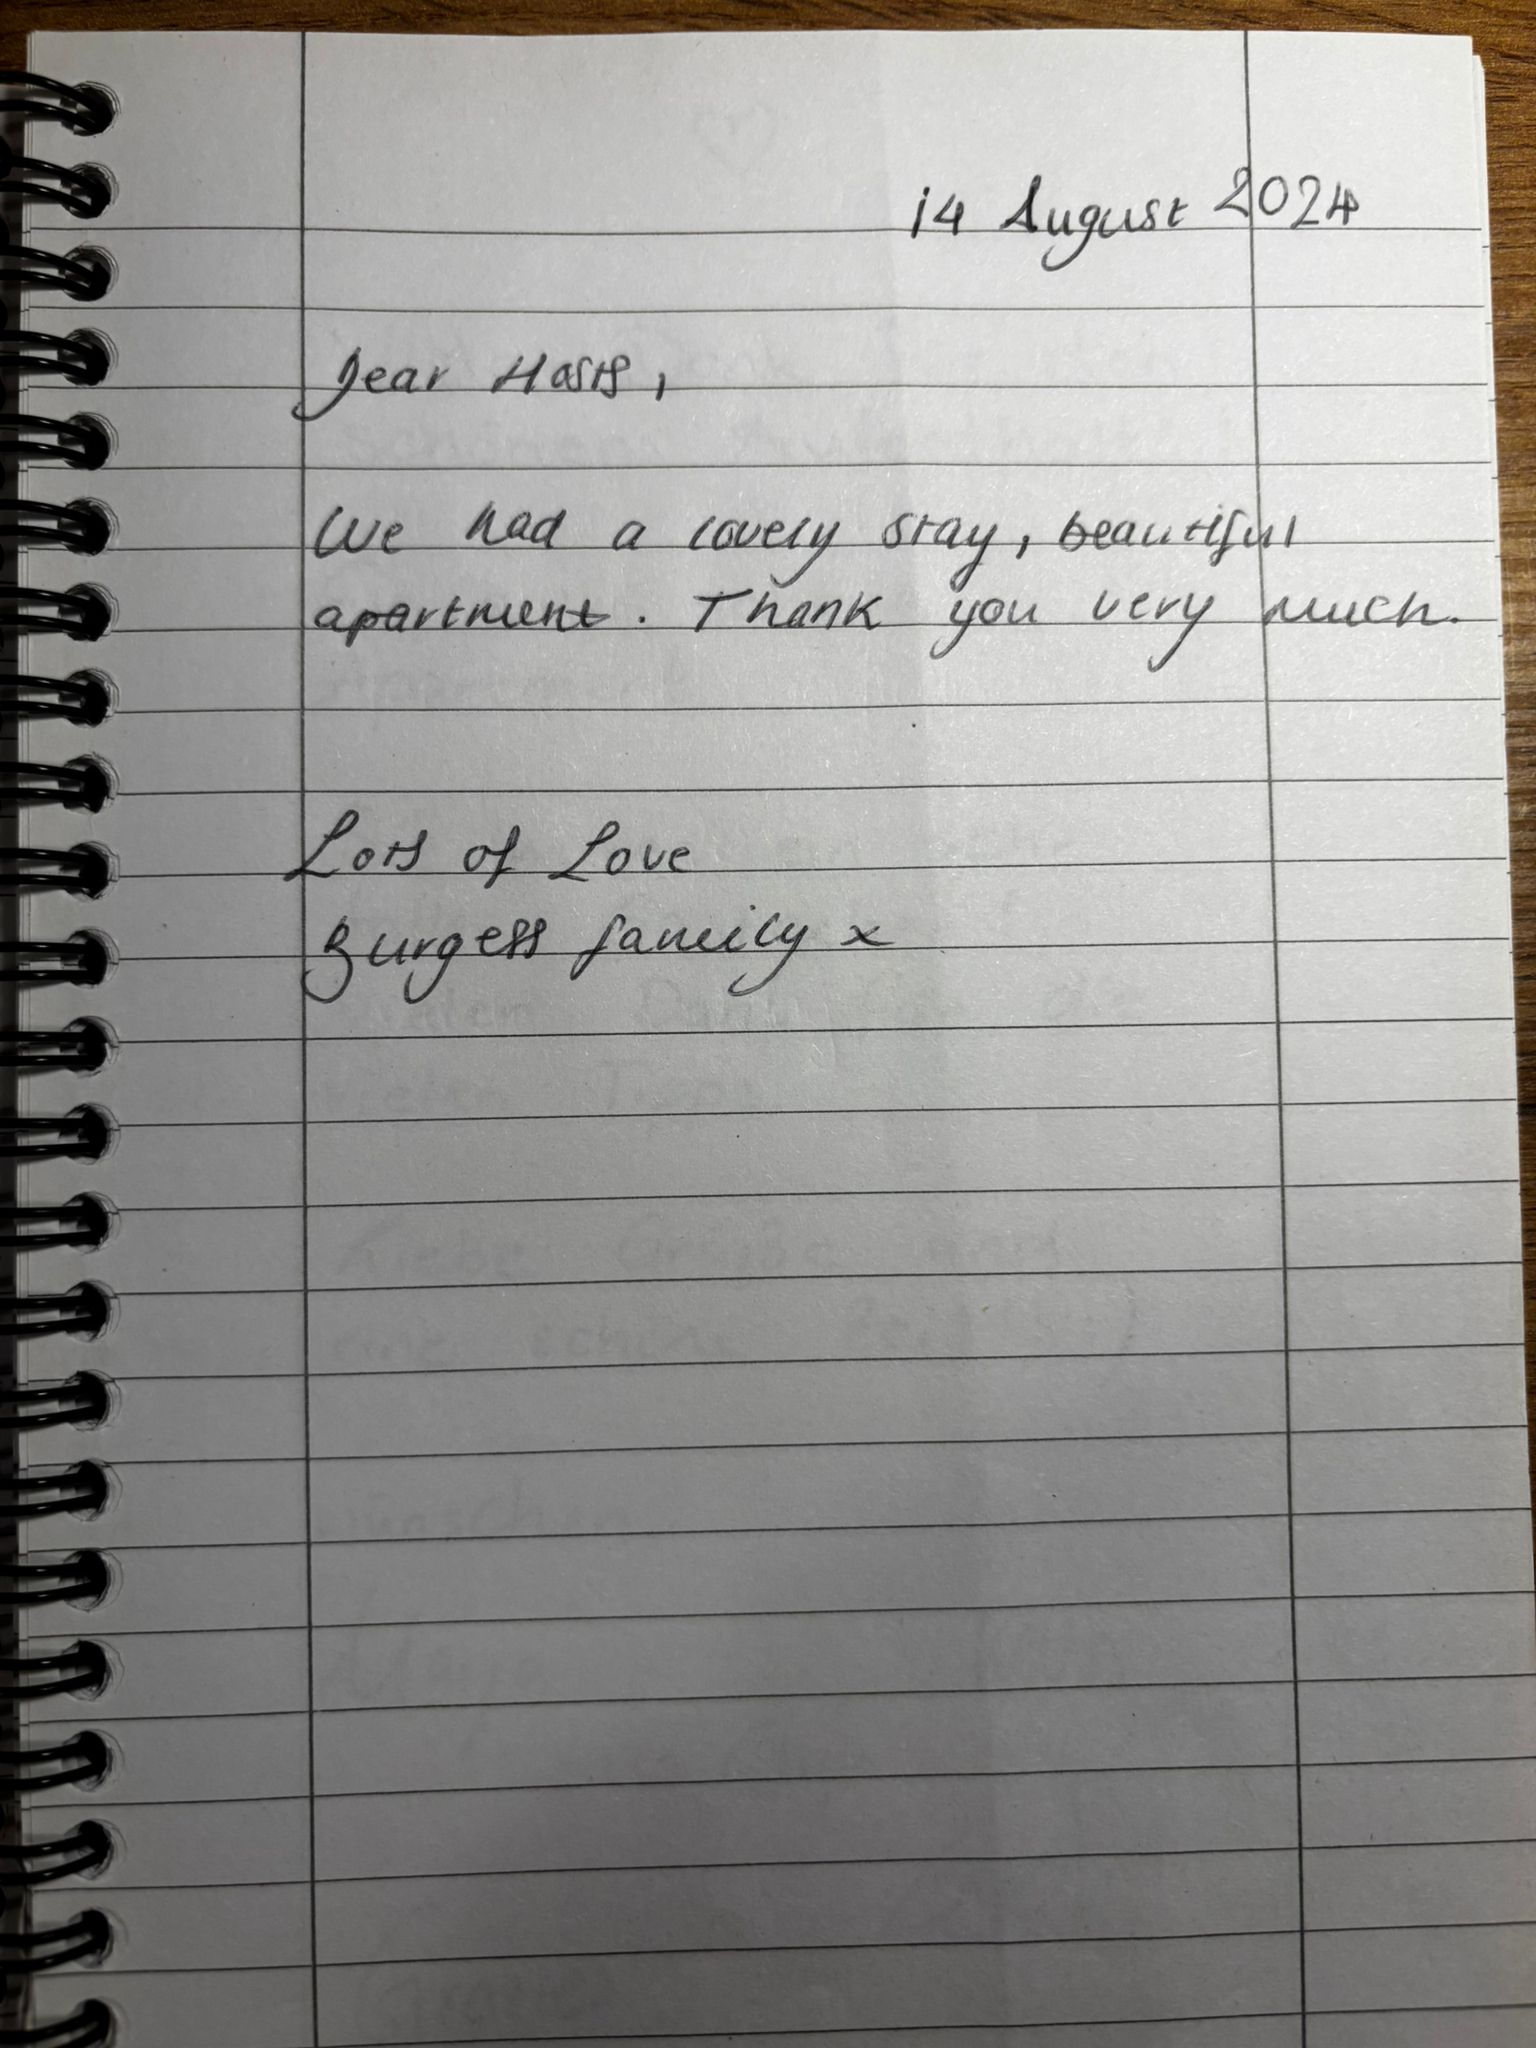 14 August 2024
Dear Hosts,
We had a lovely stay, beautiful
apartment. Thank you very much.
Lots of Love
Burgess family x